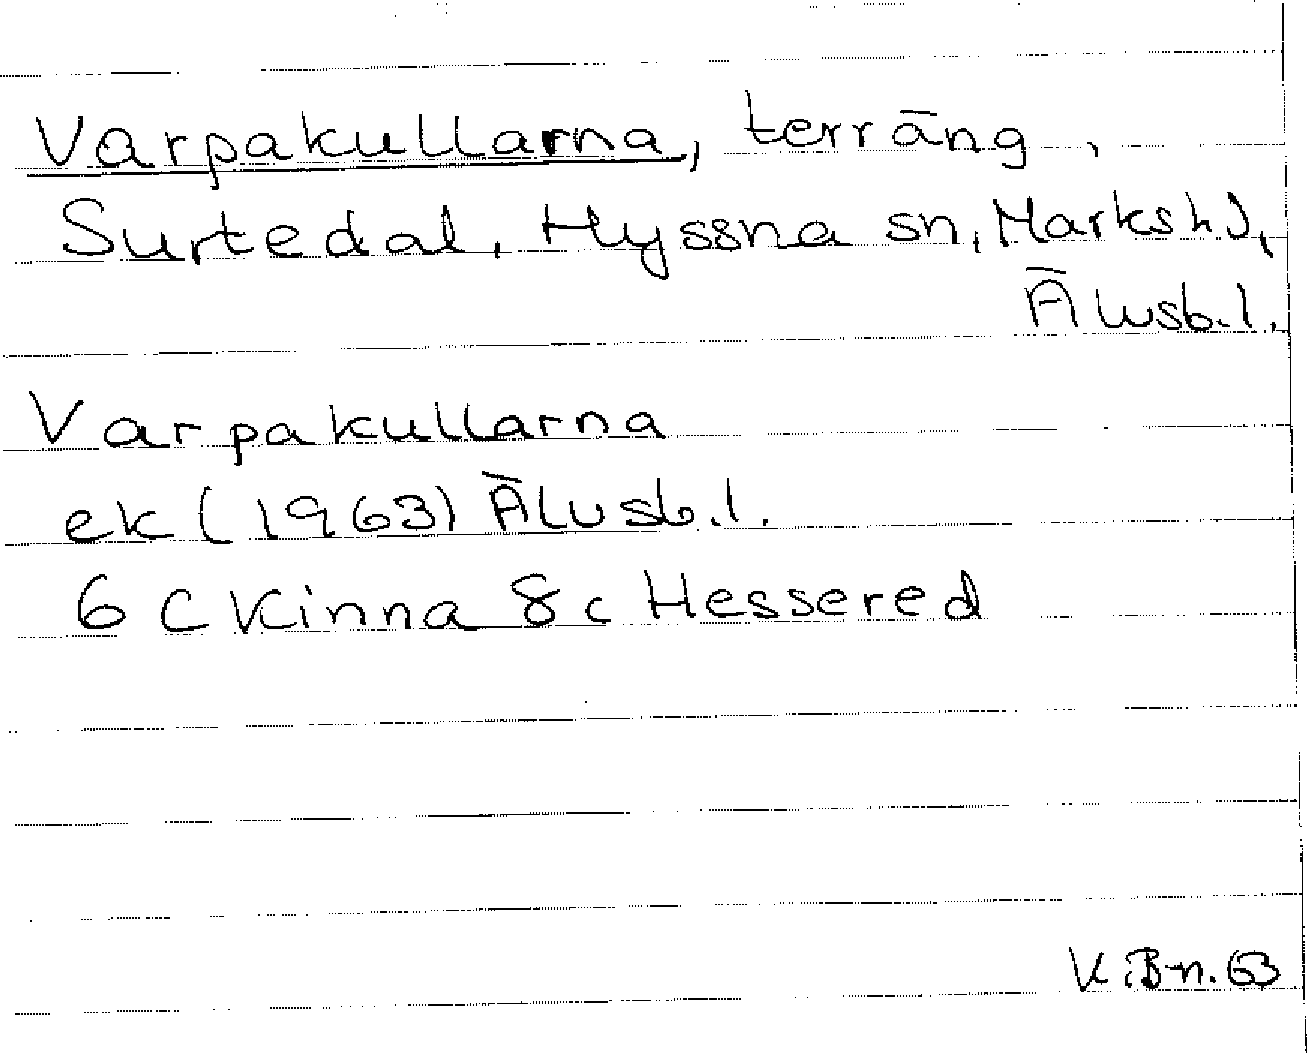 Varpakullarna, terräng,
Surtedal, Hyssna sn, Marks hd,
Älvsb.l.
Varpakullarna
ek (1963) Älvsb.l.
6 C Kinna 8c Hessered
K.B-n. 63